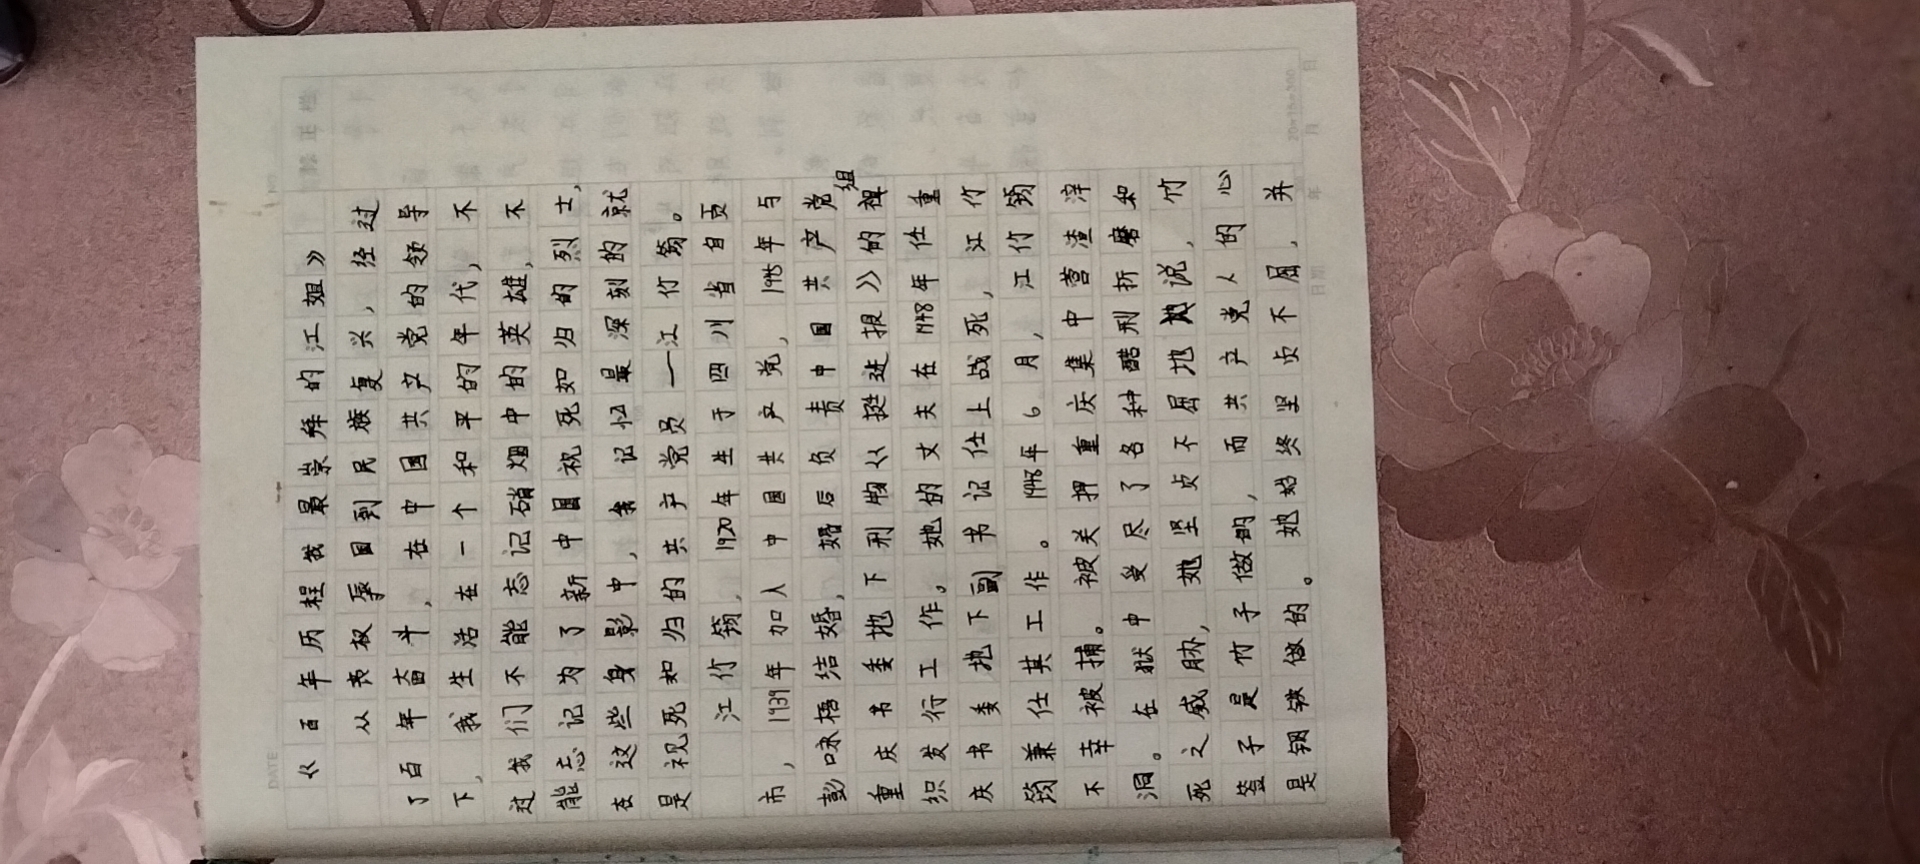 《百年历程我最崇拜的江姐》
从丧权辱国到民族复兴，经过
了百年奋斗，在中国共产党的领导
下，我生活在一个和平的年代，不
过我们不能忘记硝烟中的英雄，不
能忘记为了新中国视死如归的烈士，
在这些身影中，令我记忆最深刻的就
是视死如归的共产党员—江竹筠。
江竹筠，1920年生于四川省自贡
市，1939年加入中国共产党，1945年与
彭咏梧结婚，婚后负责中国共产党
重庆市委地下刊物《挺进报》的组
织发行工作。她的丈夫在1948年任重
庆书委地下副书记任上战死，江竹
筠兼任其工作。1948年6月，江竹筠
不幸被捕。被关押重庆集中营渣滓
洞。在狱中受尽了各种酷刑折磨和
死之威胁，她坚贞不屈地说，竹
签子是竹子做的，而共产党人的心
是钢铁做的。她始终坚贞不屈，并
20×15=300
DATE
年
月
日
日期